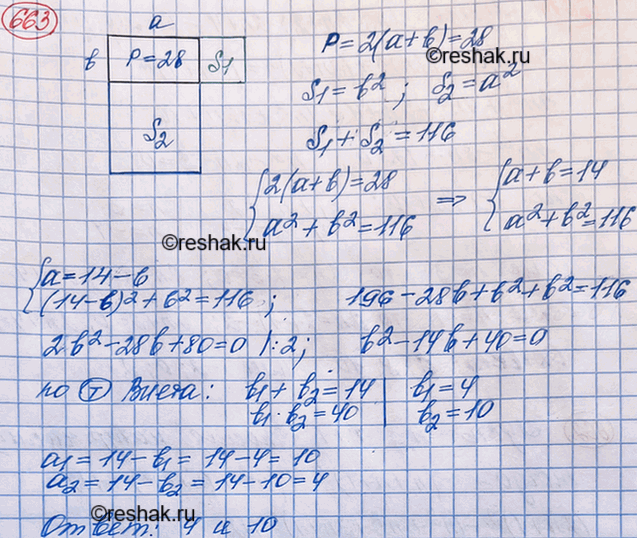 663
a
b P=28 S₁
S₂
P=2(a+b)=28
©reshak.ru
S₁=b²; S₂=a²
S₁+S₂=116
{2(a+b)=28 => {a+b=14
a²+b²=116 a²+b²=116
©reshak.ru
{a=14-b
(14-b)²+b²=116; 196-28b+b²+b²=116
2b²-28b+80=0 |:2; b²-14b+40=0
по Т Виета: b₁+b₂=14 | b₁=4
b₁·b₂=40 | b₂=10
a₁=14-b₁=14-4=10
a₂=14-b₂=14-10=4
©reshak.ru
Ответ: 4 и 10